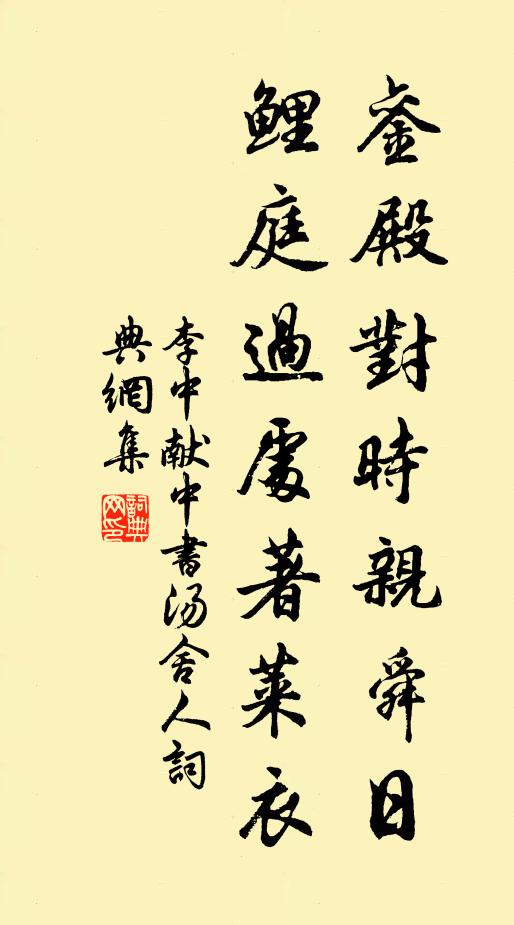 銮殿對時親舜日
鯉庭過處著莱衣
李中献中書汤舍人詞
典網集
詞典
网印